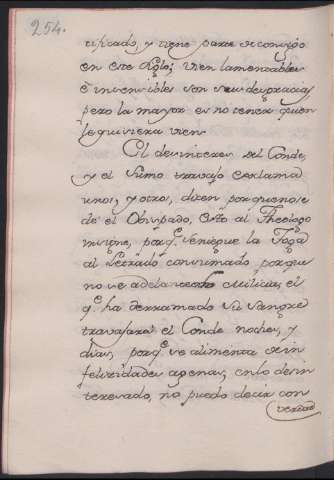 254.
tificado, y tiene parte de consejo
en este Siglo; bien lamentables
è invencibles son sus desgracias
pero la mayor es no tener quien
le quisiera bien.
El desinteres del Conde,
y el sumo travajo exclama
unos, y otro, dicen porque no se
dè el Obispado, esto al Theologo
insigne, porq.e se niegue la Toga
al Letrado consumado, porque
no se adelanta en Milicia, el
q.e ha derramado su sangre
travajarà el Conde noches, y
dias, porq.e se alimenta de in
felicidades agenas; en lo desin
teresado, no puedo decir con
verdad